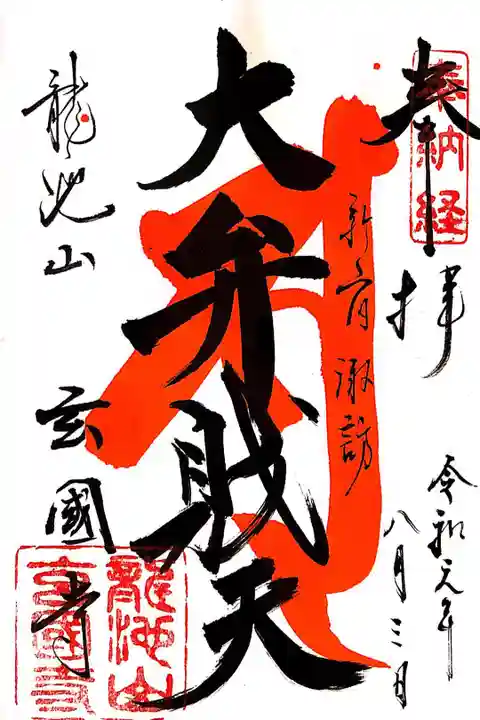 奉拝
奉納経
令和元年
八月三日
新宿諏訪
大弁財天
龍池山
玄國寺
龍池山
玄國寺